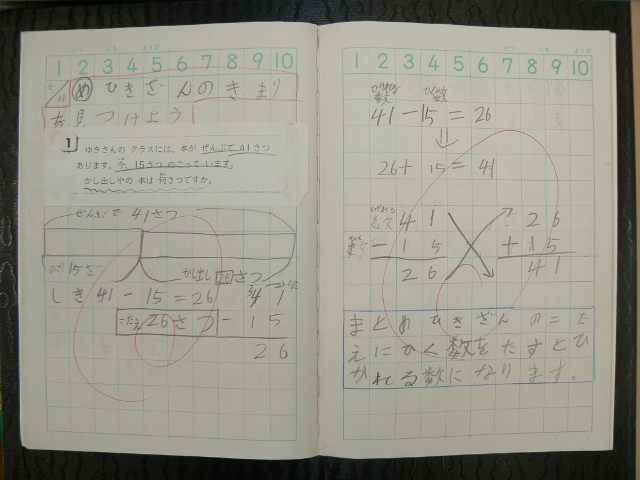 1 2 3 4 5 6 7 8 9 10
め ひきざんのきまり
を見つけよう
1 ゆきさんの クラスには、本が ぜんぶで 41さつ
あります。今、15さつ のこって います。
かし出し中の 本は 何さつですか。
ぜんぶで 41さつ
のこり 15さつ かし出し 26さつ
しき 41-15=26
こたえ 26さつ
41
-15
26
1 2 3 4 5 6 7 8 9 10
ひかれる数 ひく数
41-15=26
26+15=41
41
-15
26
26
+15
41
まとめ ひきざんのこた
えにひく数をたすとひ
かれる数になります。